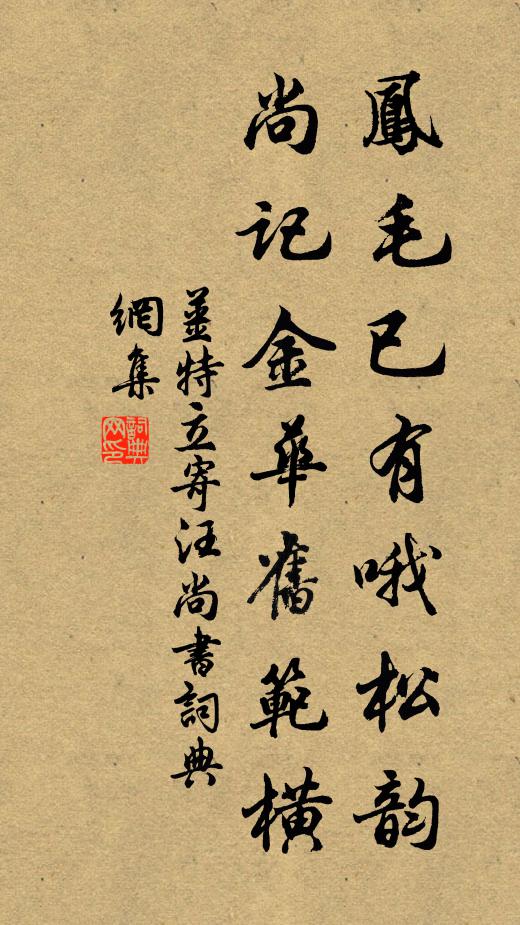 鳳毛已有哦松韵
尚記金華舊範橫
姜特立寄汪尚書詞典
網集
詞典
网印